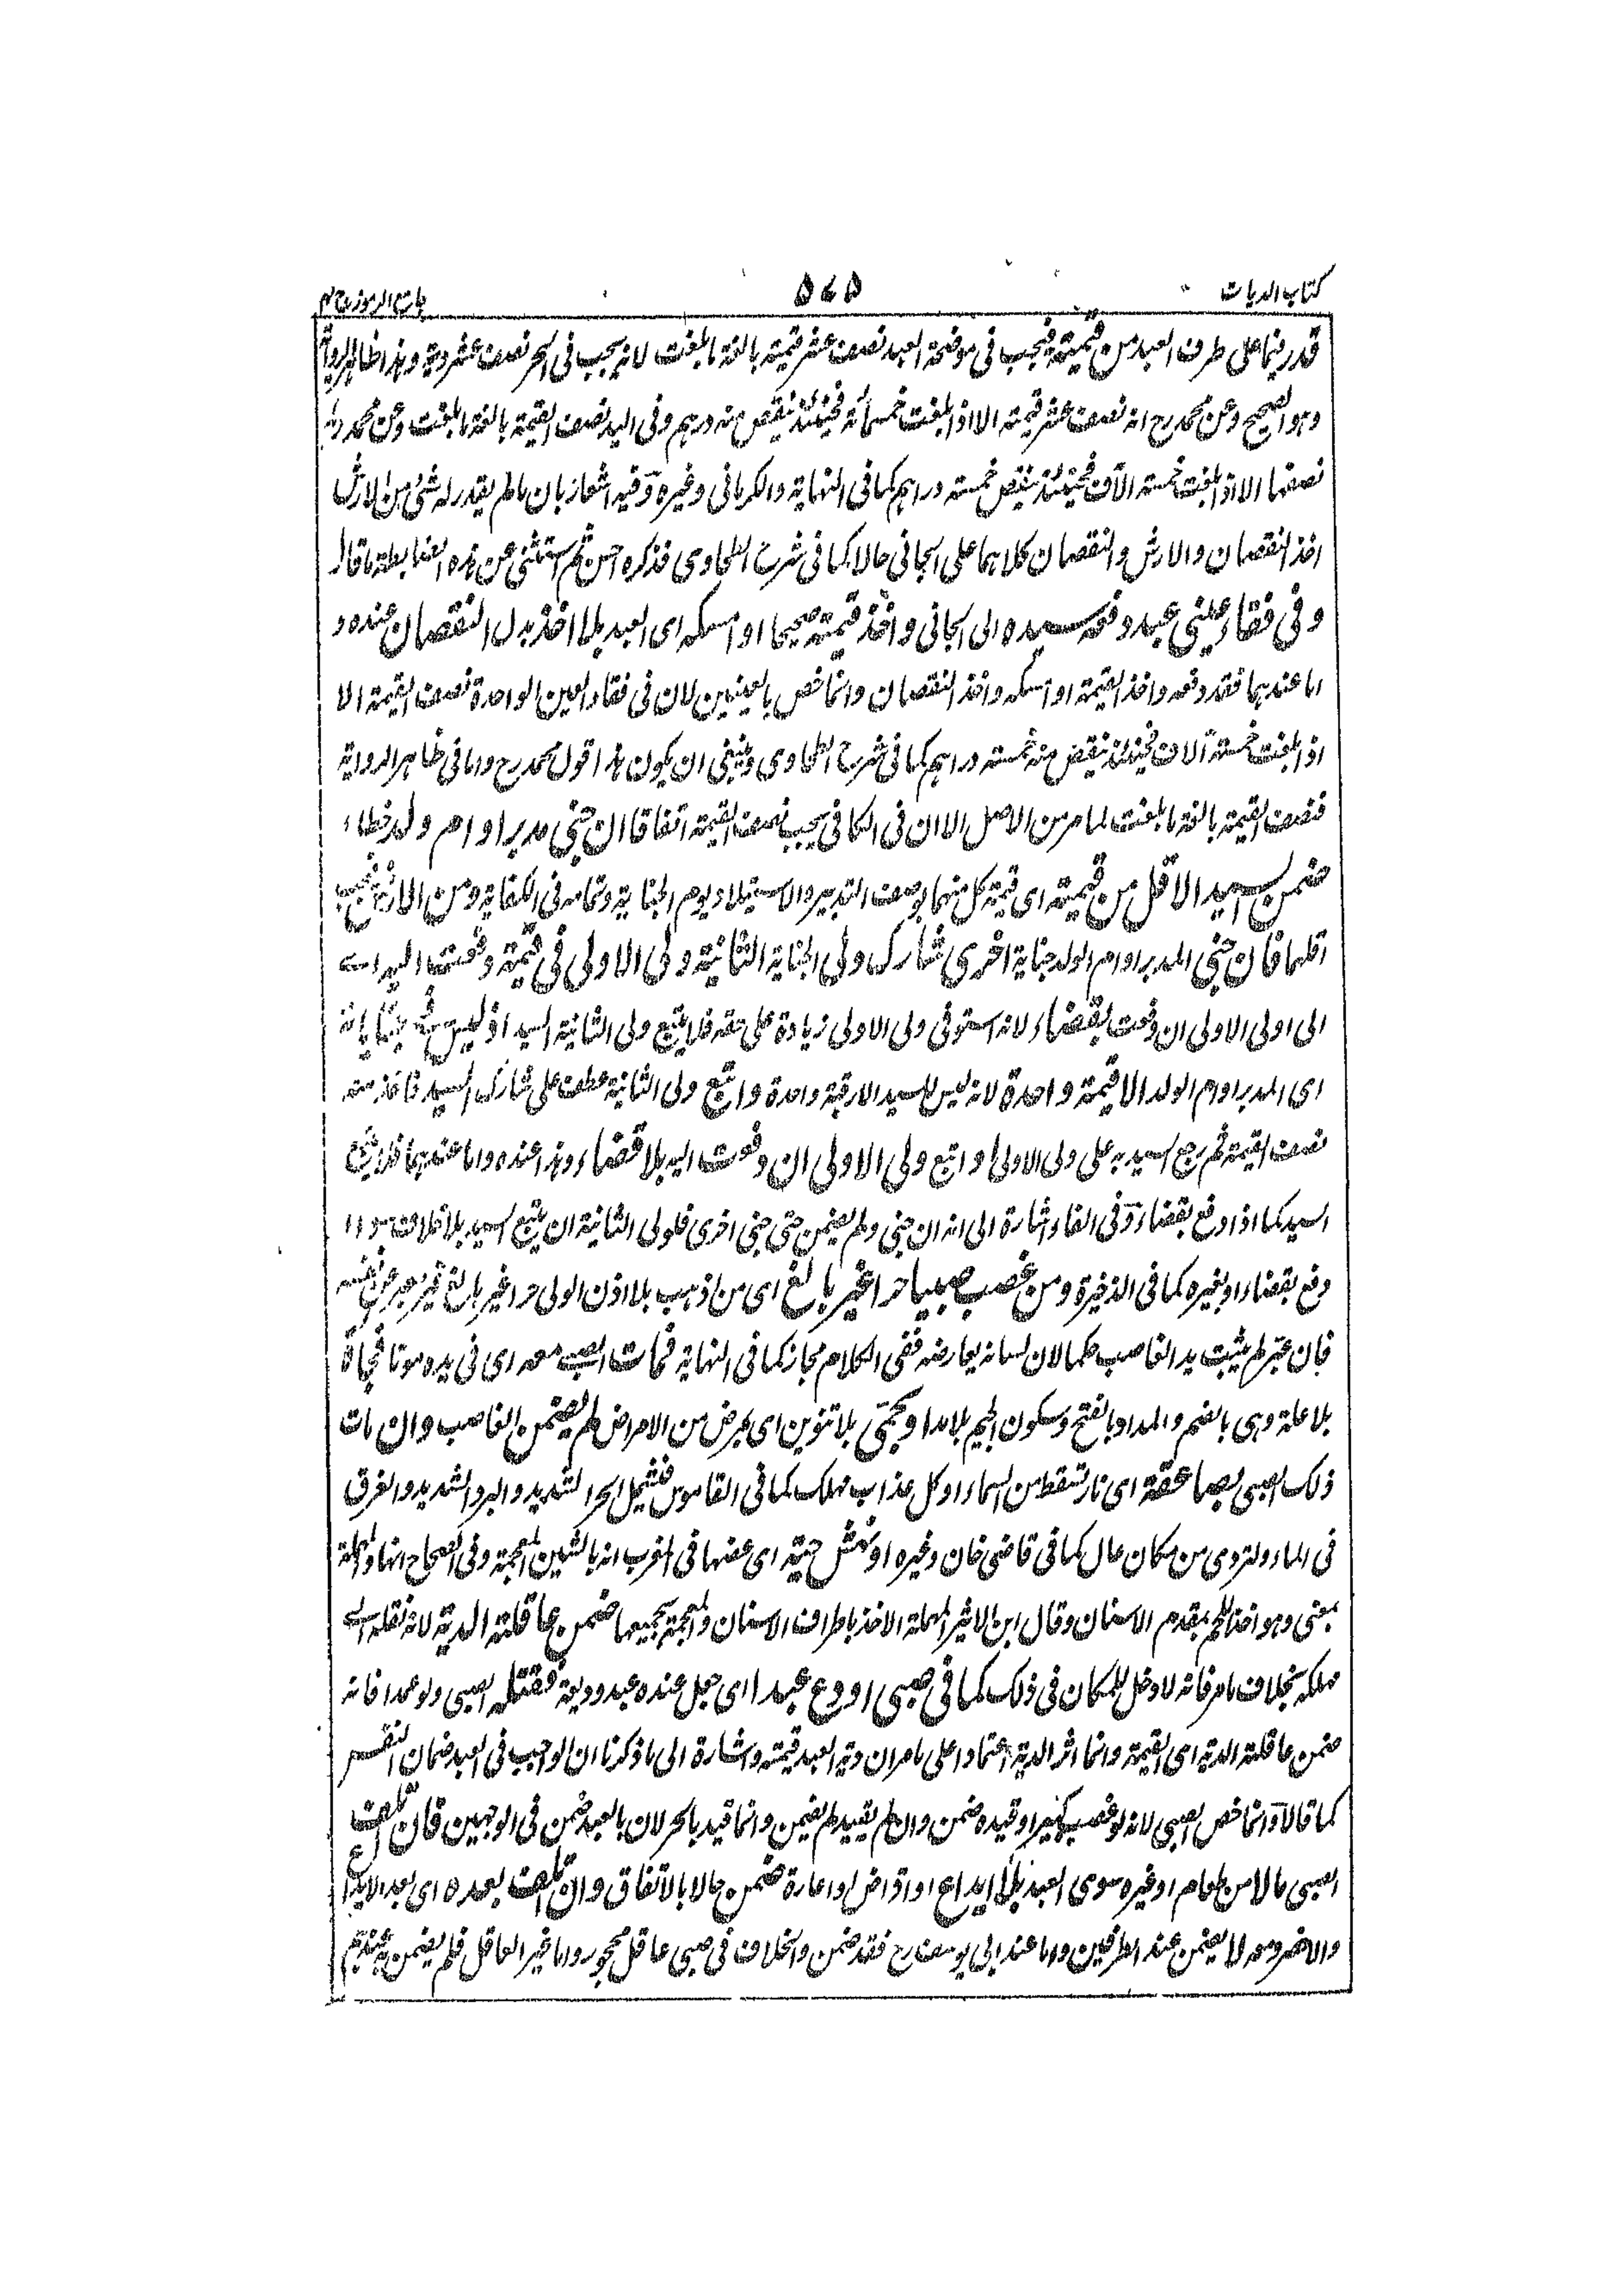 كتاب الديات ٥٧٥ جامع الرموز ج ٢
قدر فيما على طرف العبد من قيمته فيجب فى موضحة العبد نصف عشر قيمته بالغة ما بلغت لانه يجب فى الحر نصف عشر دية وهذا ظاهر الرواية
وهو الصحيح وعن محمد رح انه نصف عشر قيمته الا اذا بلغت خمسمائة فحينئذ ينقص منه درهم وفى اليد نصف القيمة بالغة ما بلغت وعن محمد رح
نصفها الا اذا بلغت خمسة الآف فحينئذ ينقص خمسة دراهم كما فى النهاية والكرمانى وغيره وفيه اشعار بان ما لم يقدر له شئ من الارش
اخذ النقصان والارش والنقصان كلاهما على الجانى حالا كما فى شرح الطحاوى فذكره احسن ثم استثنى عن هذه الضابطة ما قال
وفى فقاء عينى عبد دفعه سيده الى الجانى واخذ قيمته صحيحا او امسكه اى العبد بلا اخذ بدل النقصان عنده و
اما عندهما فقد دفعه واخذ القيمة او امسكه واخذ النقصان وانما خص بالعينين لان فى فقاء العين الواحدة نصف القيمة الا
اذا بلغت خمسة آلاف فحينئذ ينقص منه خمسة دراهم كما فى شرح الطحاوى وينبغى ان يكون هذا قول محمد رح واما فى ظاهر الرواية
فنصف القيمة بالغة ما بلغت لما مر من الاصل الا ان فى الكافى يجب نصف القيمة اتفاقا ان جنى مدبر او ام ولد خطاء
ضمن السيد الاقل من قيمته اى قيمة كل منهما بوصف التدبير والاستيلاد يوم الجناية وتمامه فى الكفاية ومن الارش فيجب
اقلهما فان جنى المدبر او ام الولد جناية اخرى شارك ولى الجناية الثانية ولى الاولى فى قيمة دفعت اليه اے
الى ولى الاولى ان دفعت بقضاء لانه استوفى ولى الاولى زيادة على حقه فلا يتبع ولى الثانية السيد اذ ليس فى جناياته
اى المدبر او ام الولد الا قيمة واحدة لانه ليس للسيد الا رقبة واحدة واتبع ولى الثانية عطف على شارك السيد فاخذ منه
نصف القيمة ثم رجع السيد به على ولى الاولى او اتبع ولى الاولى ان دفعت اليه بلا قضاء وهذا عنده واما عندهما فلا يتبع
السيد كما اذا دفع بقضاء وفى الفاء اشارة الى انه ان جنى ولم يضمن حتى جنى اخرى فلولى الثانية ان يتبع السيد بلا خلاف سواء
دفع بقضاء او بغيره كما فى الذخيرة ومن غصب صبيا حرا غير بالغ اى من اذهب بلا اذن الولى حرا غير بالغ غير معبر عن نفسه
فان عبر لم يثبت يد الغاصب حكما لان لسانه يعارضه ففى الكلام مجاز كما فى النهاية فمات الصبى معه اى فى يده موتا فجاة
بلا علة وهى بالضم والمد او بالفتح وسكون الجيم بلا مد او بحمى بلا تنوين اى بمرض من الامراض لم يضمن الغاصب وان مات
ذلك الصبى بصاعقة اى نار تسقط من السماء او كل عذاب مهلك كما فى القاموس فتشمل الحر الشديد والبرد الشديد والغرق
فى الماء والتردى من مكان عال كما فى قاضى خان وغيره او نهش حية اى عضها فى المغرب انه بالشين المعجمة وفى الصحاح انها والمهملة
بمعنى وهو اخذ اللحم بمقدم الاسنان وقال ابن الاثير المهملة الاخذ باطراف الاسنان والمعجمة بجميعها ضمن عاقلته الدية لانه نقله الى
مهلكه بخلاف ما مر فانه لا دخل للمكان فى ذلك كما فى صبى اودع عبدا اى جعل عنده عبد وديعة فقتله الصبى ولو عمدا فانه
ضمن عاقلته الدية اى القيمة وانما اثر الدية اعتمادا على ما مر ان دية العبد قيمته واشارة الى ما ذكرنا ان الواجب فى العبد ضمان النفس
كما قالا وانما خص الصبى لانه لو غصب كبيرا وقيده ضمن وان لم يقيد لم يضمن وانما قيد بالحر لان بالعبد ضمن فى الوجهين فان تلف
الصبى مالا من طعام او غيره سوى العبد بلا ايداع او اقراض او اعارة ضمن حالا بالاتفاق وان اتلف بعده اى بعد الايداع
والاخر معه لا يضمن عند الطرفين واما عند ابى يوسف رح فقد ضمن والخلاف فى صبى عاقل محجور واما غير العاقل فلم يضمن عندهم